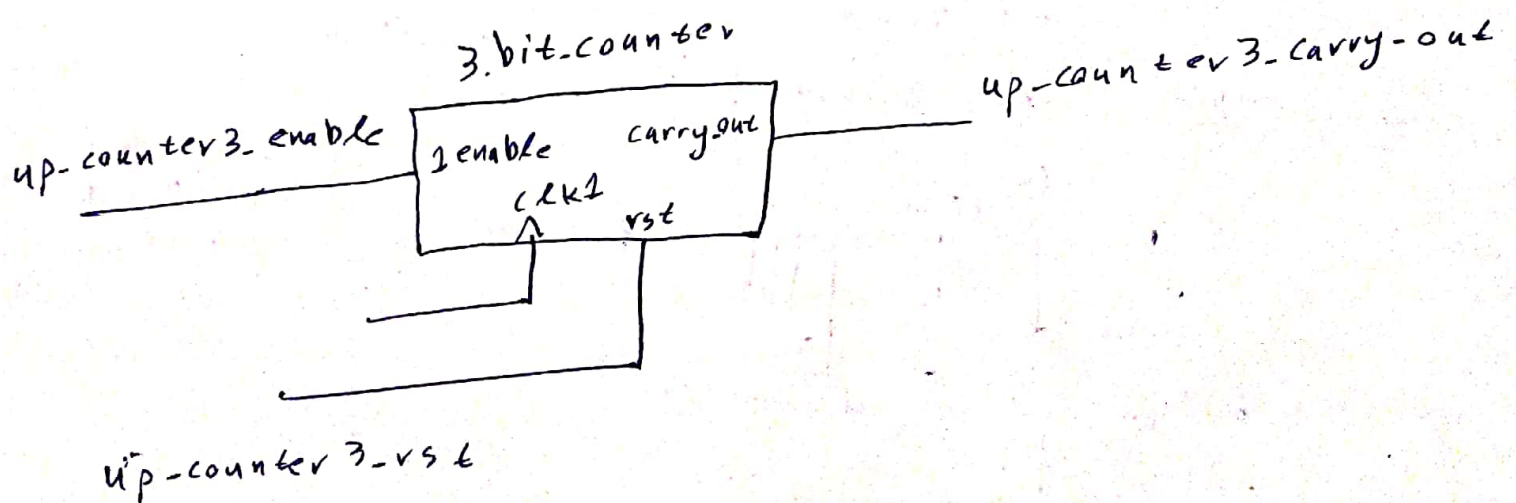 3.bit-counter
up-counter3-carry-out
up-counter3-enable
1enable
carry-out
clk1
rst
up-counter3-rst